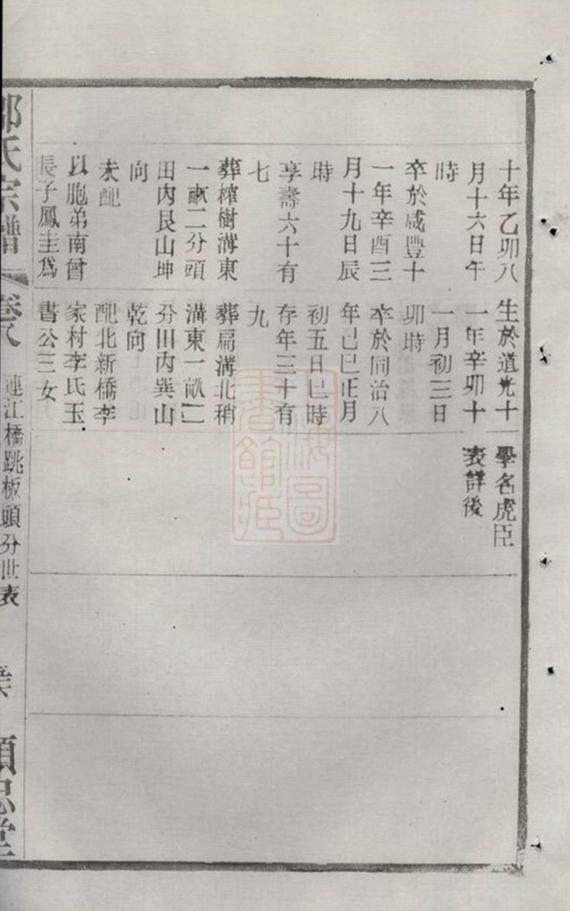 十年乙卯八
月十六日午
時
卒於咸豐十
一年辛酉三
月十九日辰
時
享壽六十有
七
葬榨樹溝東
一畝二分頭
田內艮山坤
向
未配
以胞弟南曾
長子鳳圭爲
生於道光十
一年辛卯十
一月初三日
卯時
卒於同治八
年己巳正月
初五日巳時
存年三十有
九
葬扁溝北稍
溝東一畝二
分田內巽山
乾向
配北新橋李
家村李氏玉
書公三女
學名虎臣
表詳後
氏宗譜
卷八
連江橋跳板頭分世表